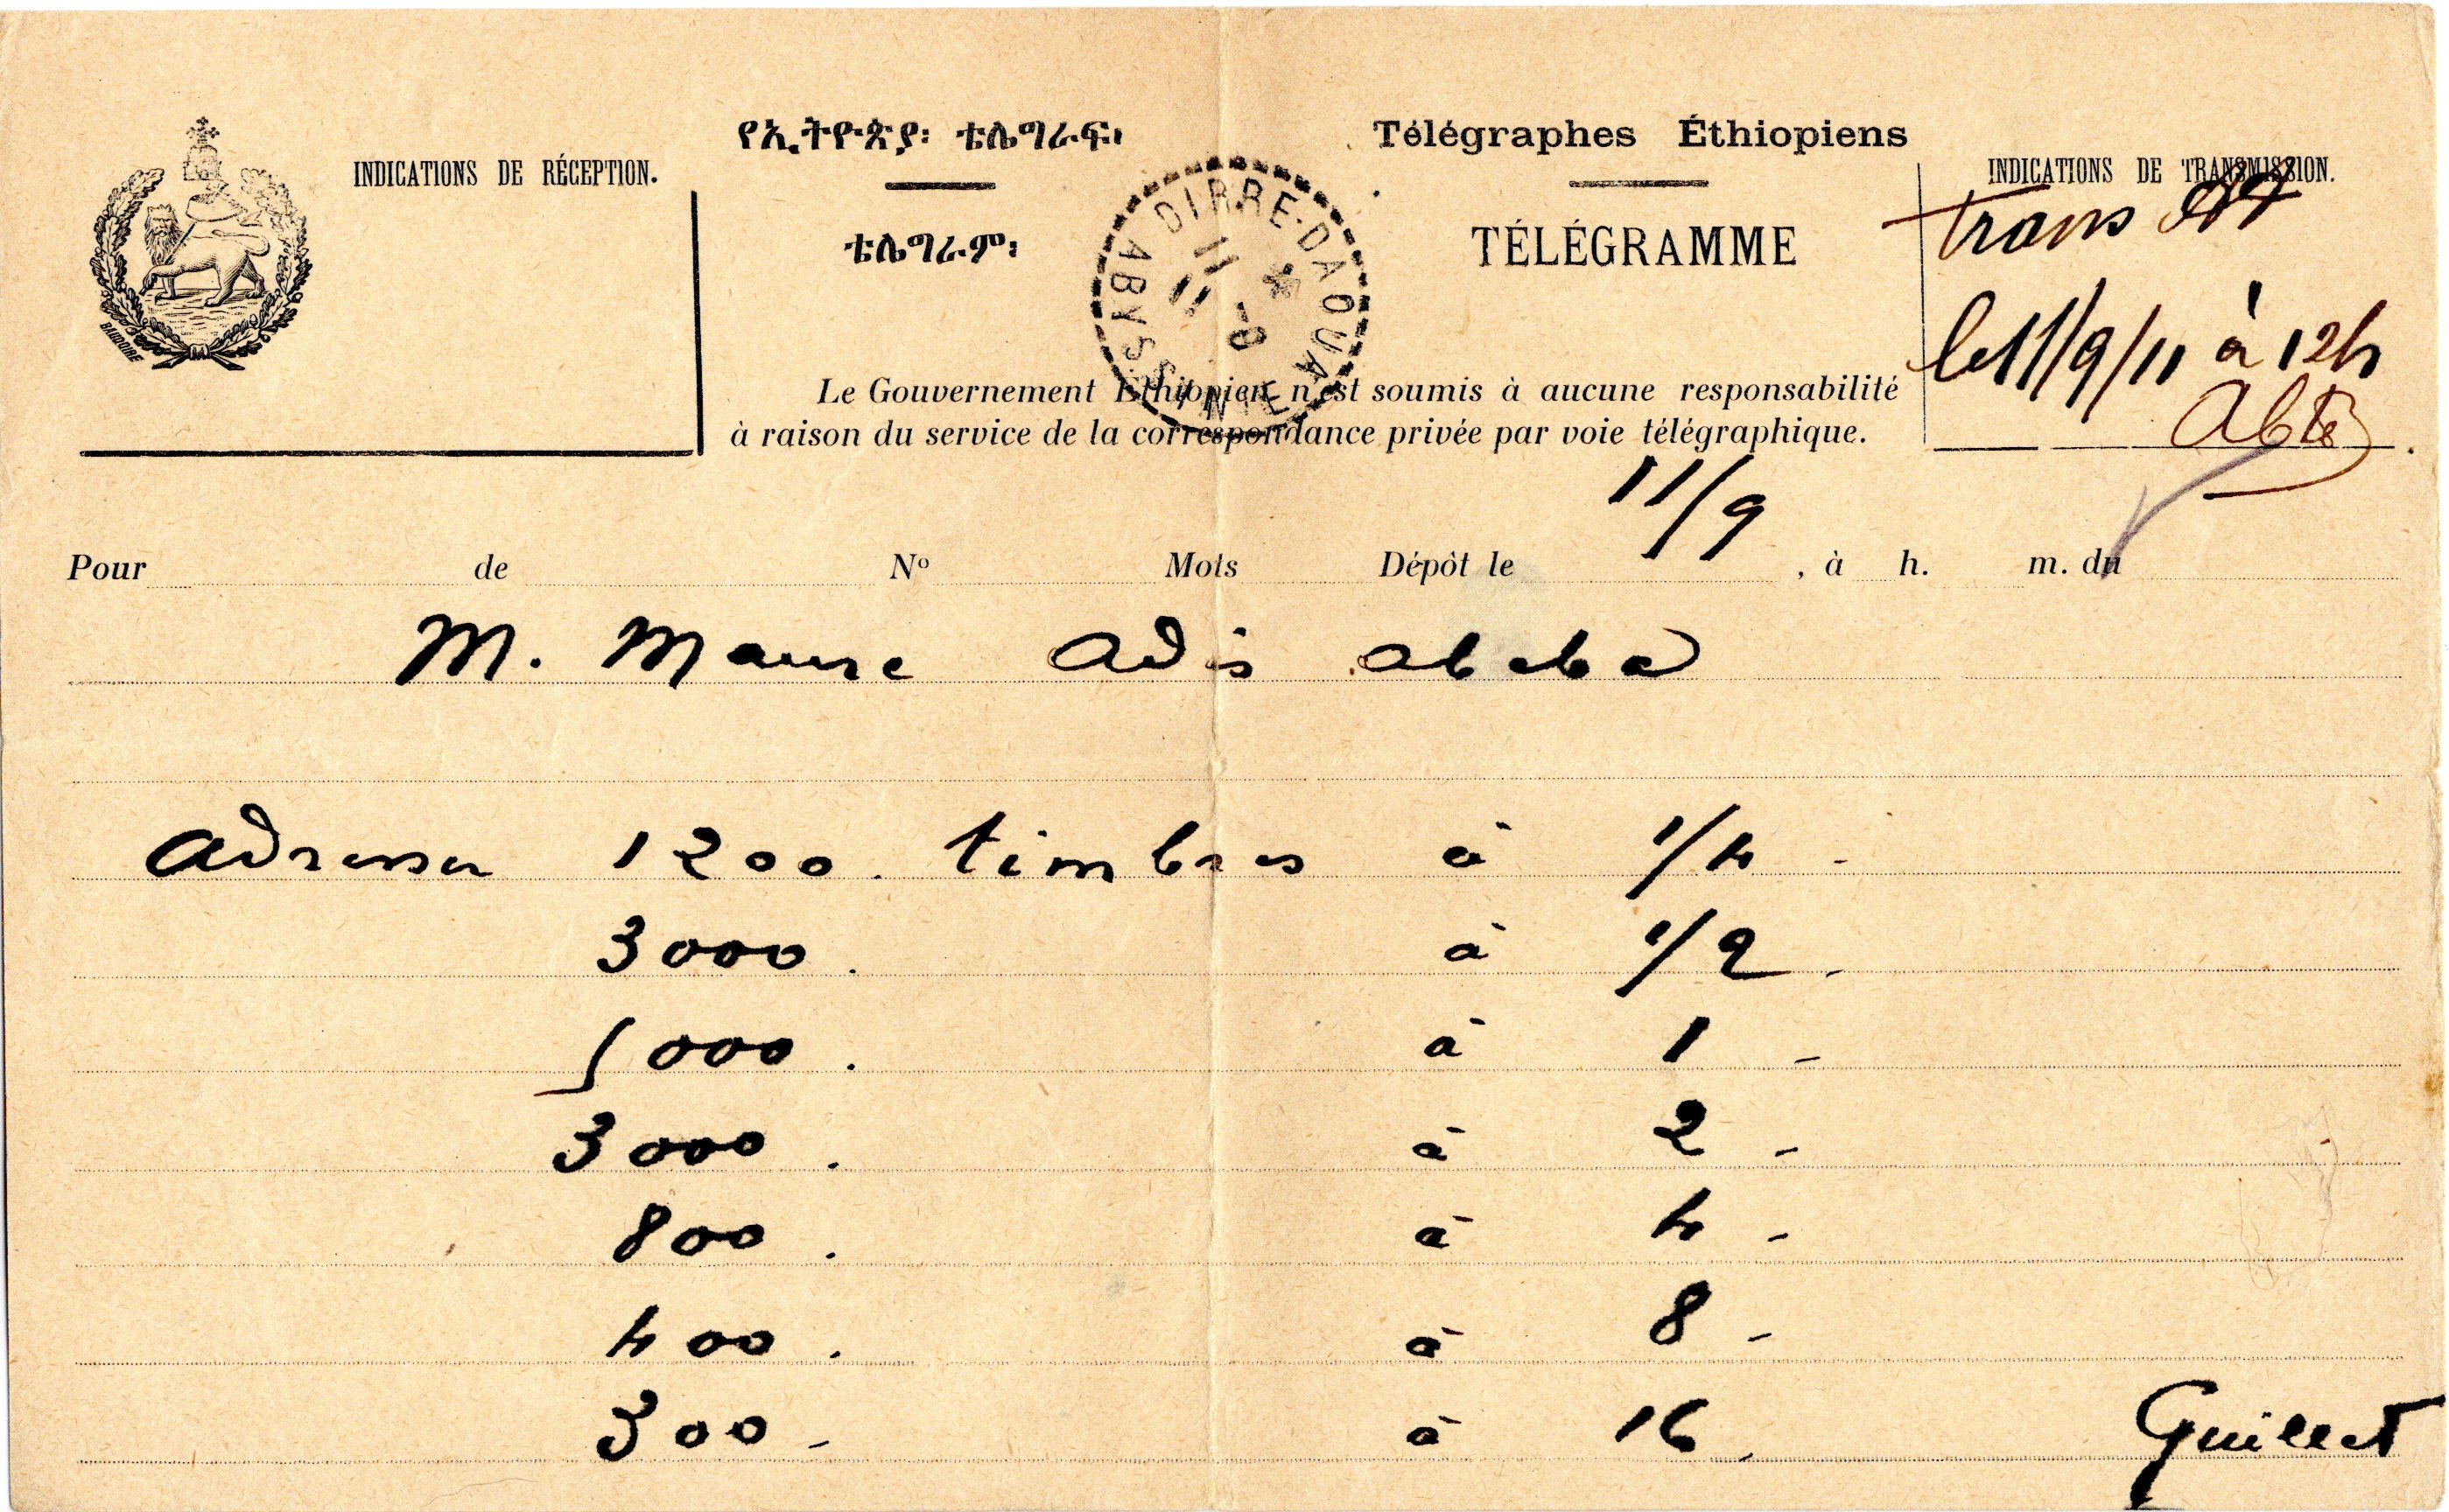 የኢትዮጵያ፡ ቴሌግራፍ፡
Télégraphes Éthiopiens
INDICATIONS DE RÉCEPTION.
INDICATIONS DE TRANSMISSION.
ቴሌግራም፡
TÉLÉGRAMME
BAUDOIRE
DIRRE-DAOUA
11 -9
11
ABYSSINIE
trans
le 11/9/11 à 12h
Le Gouvernement Éthiopien n'est soumis à aucune responsabilité
à raison du service de la correspondance privée par voie télégraphique.
Pour de Nº Mots Dépôt le 11/9, à h. m. du
M. Maure Adis Abeba
Adresser 1200. timbres à 1/4 -
3000. à 1/2 -
5000. à 1 -
3000. à 2 -
800. à 4 -
400. à 8 -
300 - à 16.
Guillet